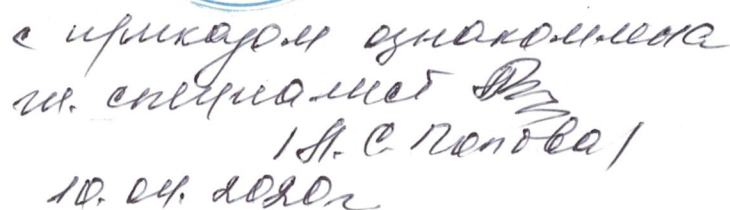 с приказом ознакомлена
гл. специалист
/Н. С. Попова/
10.04.2020г